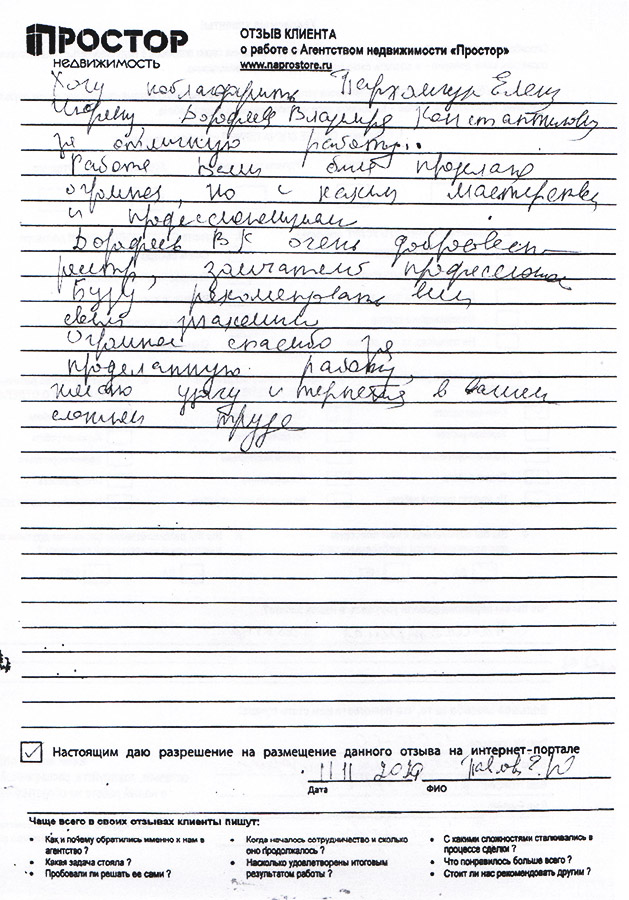 ПРОСТОР
НЕДВИЖИМОСТЬ
ОТЗЫВ КЛИЕНТА
о работе с Агентством недвижимости «Простор»
www.naprostore.ru
Хочу поблагодарить Пархомчук Елену
Дорофеев Владимир Константинович
за отличную работу..
Работа была проделана
огромная, но с каким мастерством
и профессионализмом
Дорофеев В К очень
профессионал
Буду рекомендовать всем
своим знакомым
Огромное спасибо за
проделанную работу,
желаю удачи и терпения в вашем
сложном труде
Настоящим даю разрешение на размещение данного отзыва на интернет-портале
11 11
Дата ФИО
Чаще всего в своих отзывах клиенты пишут:
• Как и почему обратились именно к нам в агентство ?
• Какая задача стояла ?
• Пробовали ли решать ее сами ?
• Когда началось сотрудничество и сколько оно продолжалось ?
• Насколько удовлетворены итоговым результатом работы ?
• С какими сложностями сталкивались в процессе сделки ?
• Что понравилось больше всего ?
• Стоит ли нас рекомендовать другим ?